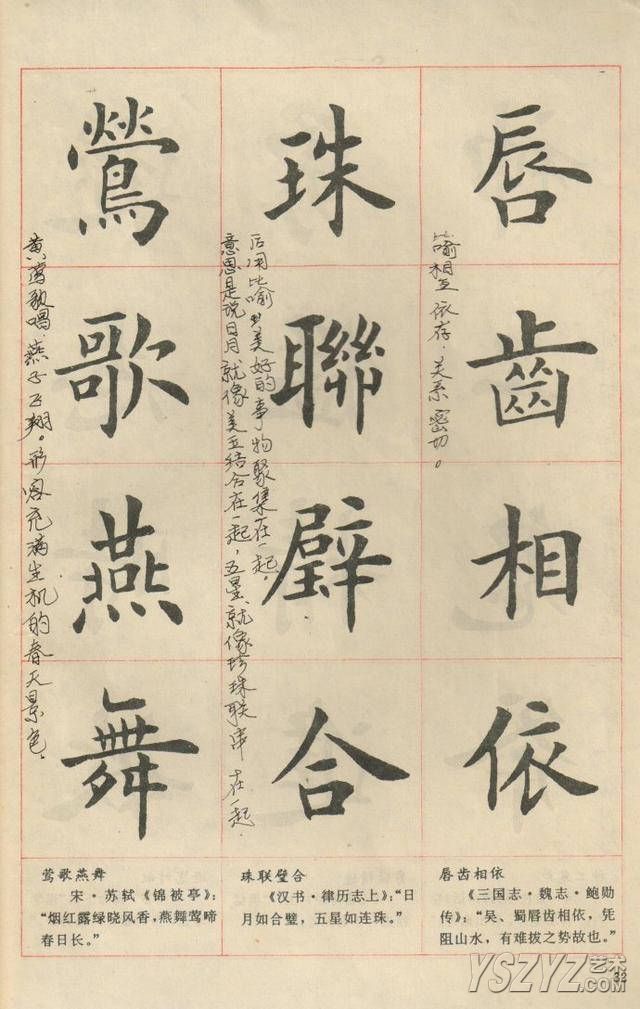 唇齒相依
比喻相互依存，关系密切。
珠聯璧合
后用比喻美好的事物聚集在一起。
意思是说日月就像美玉结合在一起，五星就像珍珠联串在一起.
鶯歌燕舞
黄莺歌唱，燕子飞翔。形容充满生机的春天景色。
唇齿相依
《三国志·魏志·鲍勋
传》：“吴、蜀唇齿相依，凭
阻山水，有难拨之势故也。”
珠联璧合
《汉书·律历志上》：“日
月如合璧，五星如连珠。”
莺歌燕舞
宋·苏轼《锦被亭》：
“烟红露绿晓风香，燕舞莺啼
春日长。”
32
YSZYZ艺术
.COM